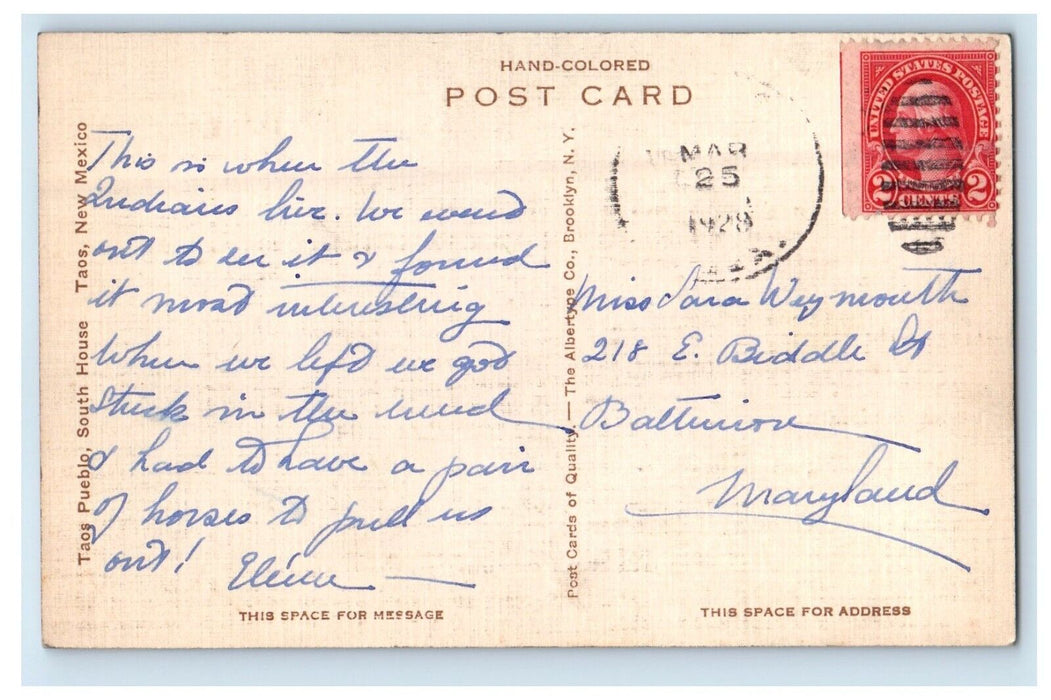 HAND-COLORED
POST CARD
Taos Pueblo, South House Taos, New Mexico
This is where the
Indians live. We went
out to see it & found
it most interesting
When we left we got
stuck in the mud
& had to have a pair
of horses to pull us
out!
THIS SPACE FOR MESSAGE
Post Cards of Quality — The Albertype Co., Brooklyn, N. Y.
MAR
25
1928
UNITED STATES POSTAGE
2 CENTS 2
Miss Sara Weymouth
218 E. Biddle St
Baltimore
Maryland
THIS SPACE FOR ADDRESS